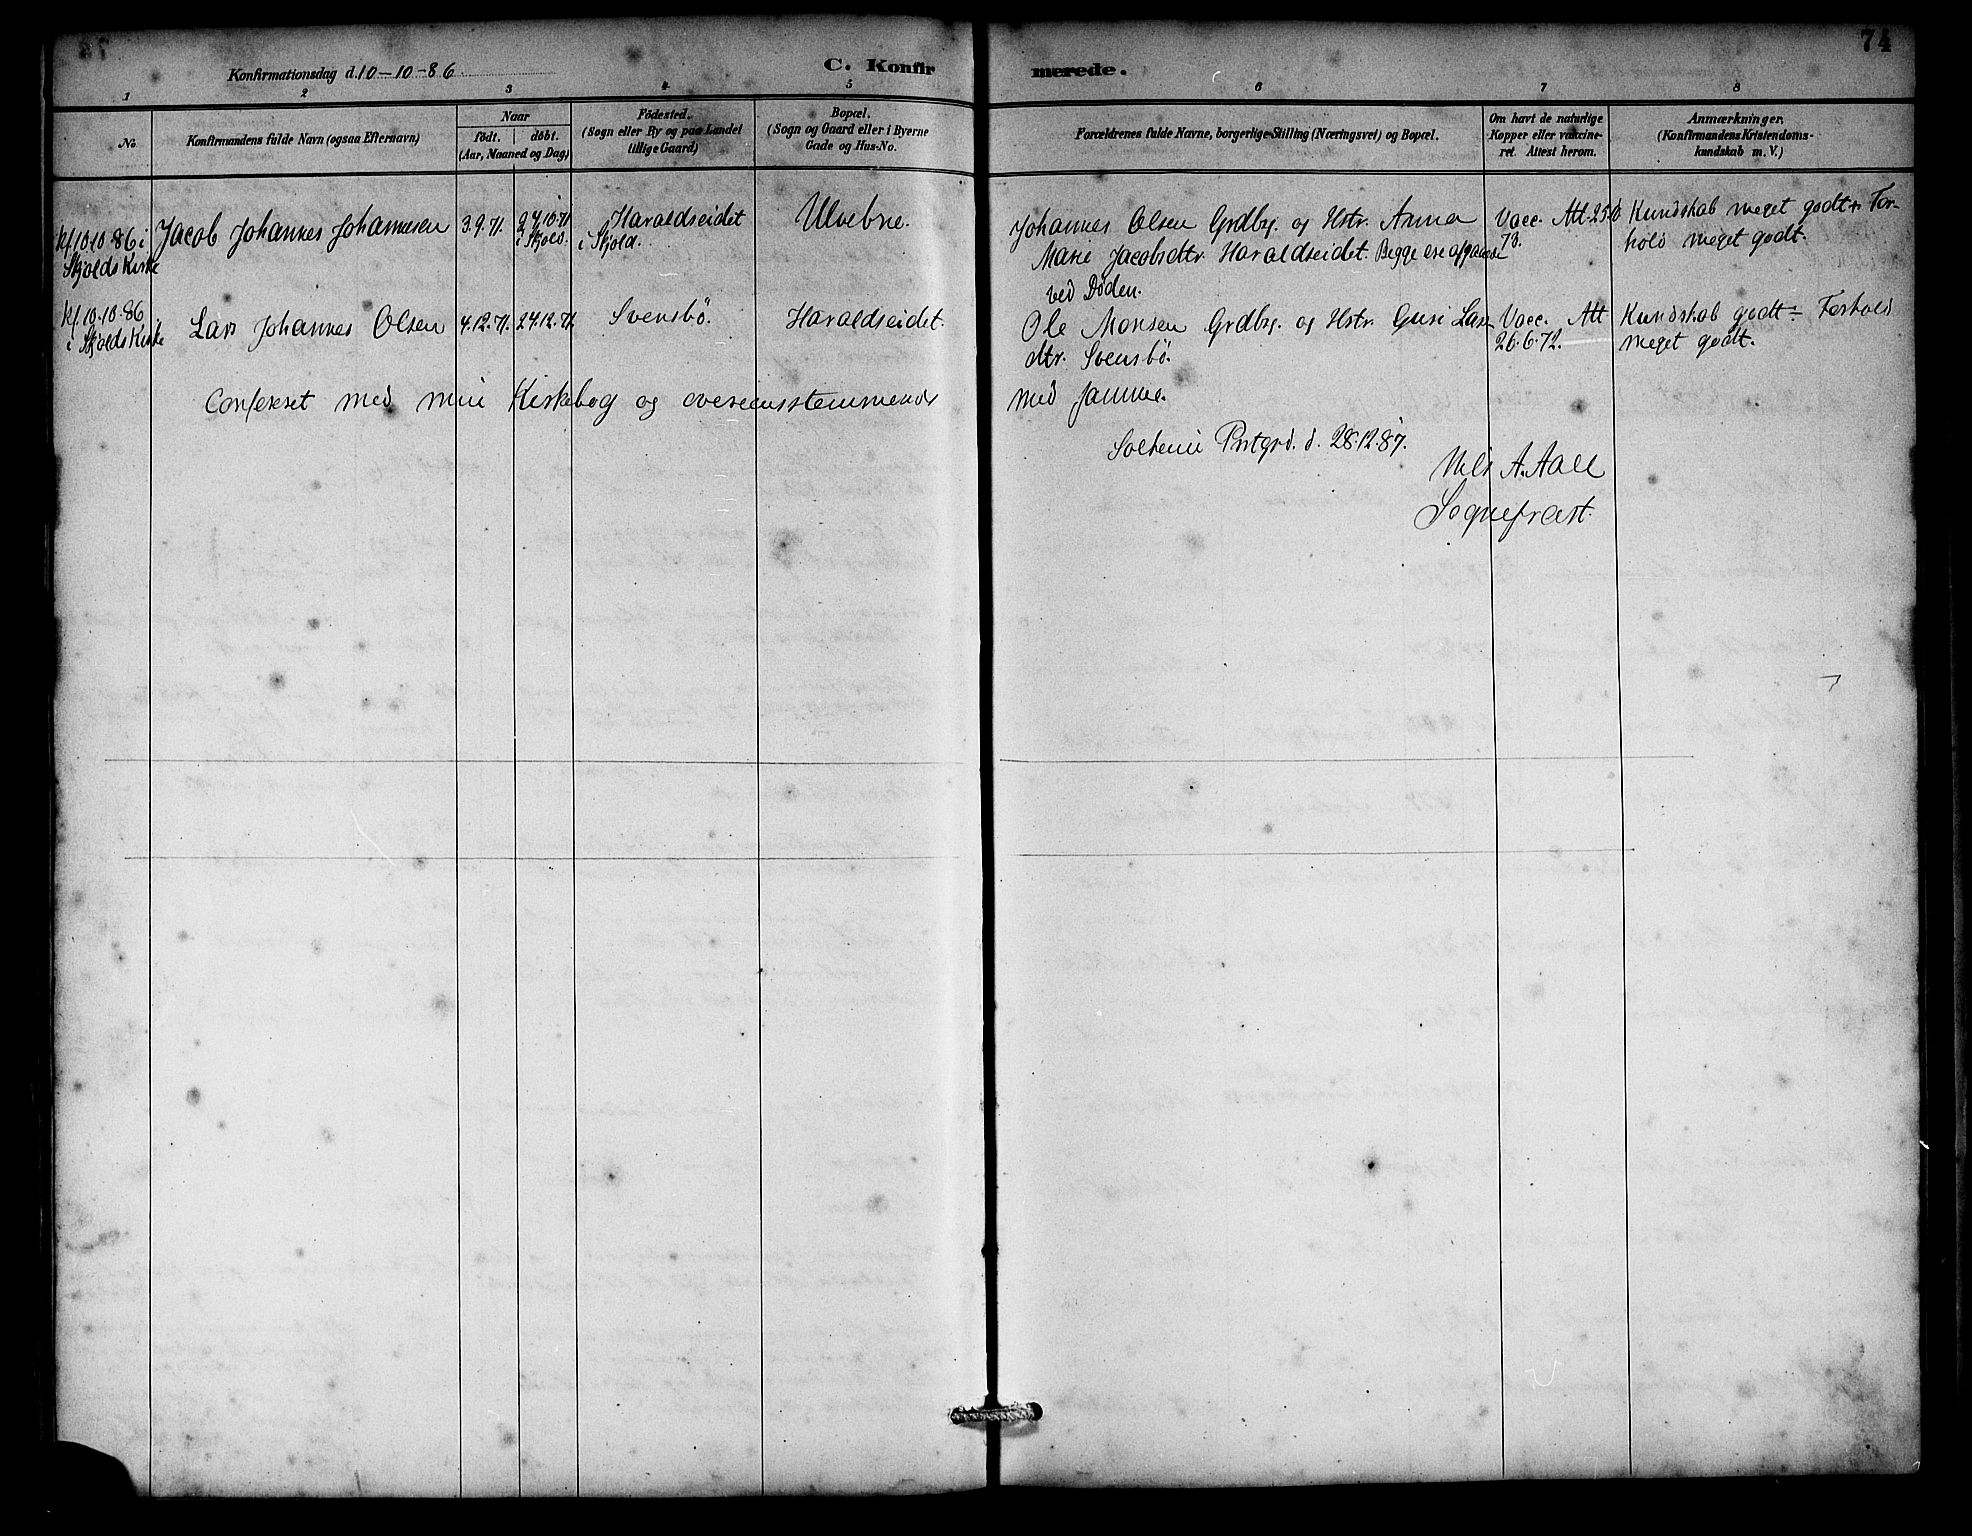 74
Konfirmationsdag d. 10-10-86
C. Konfirmerede.
1 2 3 4 5 6 7 8
No
Konfirmandens fulde Navn (ogsaa Efternavn)
Naar
født. døbt.
(Aar, Maaned og Dag)
Fødested.
(Sogn eller By og paa Landet
tillige Gaard)
Bopæl.
(Sogn og Gaard eller i Byerne
Gade og Hus-No.
Forældrenes fulde Navne, borgerlige Stilling (Næringsvei) og Bopæl.
Om havt de naturlige
Kopper eller vaccine-
ret. Attest herom.
Anmærkninger,
(Konfirmandens Kristendoms-
kundskab m. V.)
Kf. 10.10.86 i
Skjolds Kirke
Jacob Johannes Johannesen
3.9.71.
24.10.71
i Skjold.
Haraldseidet
i Skjold.
Ulvebne.
Johannes Olsen Grdbg. og Hstr. Anna
Marie Jacobsdtr. Haraldseidet. Begge ere afgaaede
ved Døden.
Vacc. Att.
73.
Kundskab meget godt+ For-
hold meget godt.
Kf. 10.10.86
i Skjolds Kirke
Lars Johannes Olsen
4.12.71.
24.12.71.
Svensbö.
Haraldseidet.
Ole Monsen Grdbg. og Hstr. Guri Lars-
dtr. Svensbö.
Vacc. Att
26.6.72.
Kundskab godt÷ Forhold
meget godt.
Confereret med min Kirkebog og overeensstemmende med samme.
Solheim Prstgrd. d. 28.12.87.
Nils A. Aall
Sognepræst.